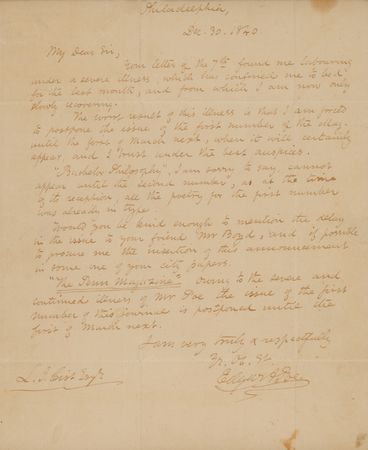 Philadelphia,
Dec. 30. 1840.
My Dear Sir,
Your letter of the 7th found me labouring
under a severe illness, which has confined me to bed
for the last month, and from which I am now only
slowly recovering.
The worst result of this illness is that I am forced
to postpone the issue of the first number of the Mag.
until the first of March next, when it will certainly
appear, and I trust under the best auspices.
"Bachelor Philosophy", I am sorry to say, cannot
appear until the second number, as at the time
of its reception, all the poetry for the first number
was already in type.
Would you be kind enough to mention the delay
in the issue to your friend Mr Boyd, and if possible
to procure me the insertion of this announcement
in some one of your city papers.
"The Penn Magazine" Owing to the severe and
continued illness of Mr Poe the issue of the first
number of this journal is postponed until the
first of March next.
I am very truly & respectfully
Yr. Ob. St
Edgar A Poe
L. J. Cist Esqr.